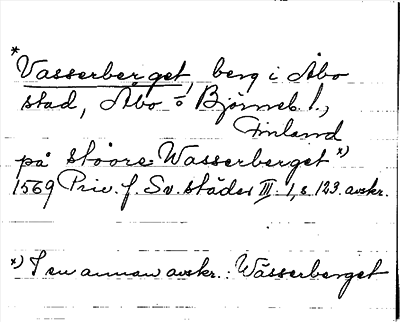 *
Vasserberget, berg i Åbo
stad, Åbo o Björneb. l.,
Finland
på stoore Wasserberget x)
1569 Priv. f. Sv. städer III: 1, s. 123. avskr.
x) I en annan avskr.: Wässerberget